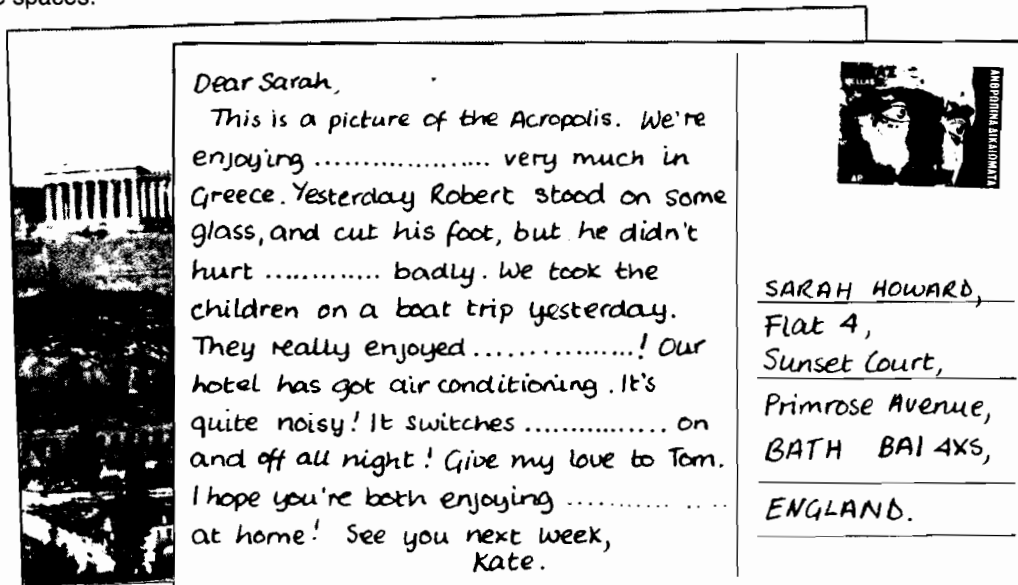 e spaces.
Dear Sarah,
This is a picture of the Acropolis. We're
enjoying .................... very much in
Greece. Yesterday Robert stood on some
glass, and cut his foot, but he didn't
hurt ............. badly. We took the
children on a boat trip yesterday.
They really enjoyed ................! Our
hotel has got air conditioning. It's
quite noisy! It switches ............... on
and off all night! Give my love to Tom.
I hope you're both enjoying ..............
at home! See you next week,
Kate.
ΑΝΘΡΩΠΙΝΑ ΔΙΚΑΙΩΜΑΤΑ
SARAH HOWARD,
Flat 4,
Sunset Court,
Primrose Avenue,
BATH BA1 4XS,
ENGLAND.